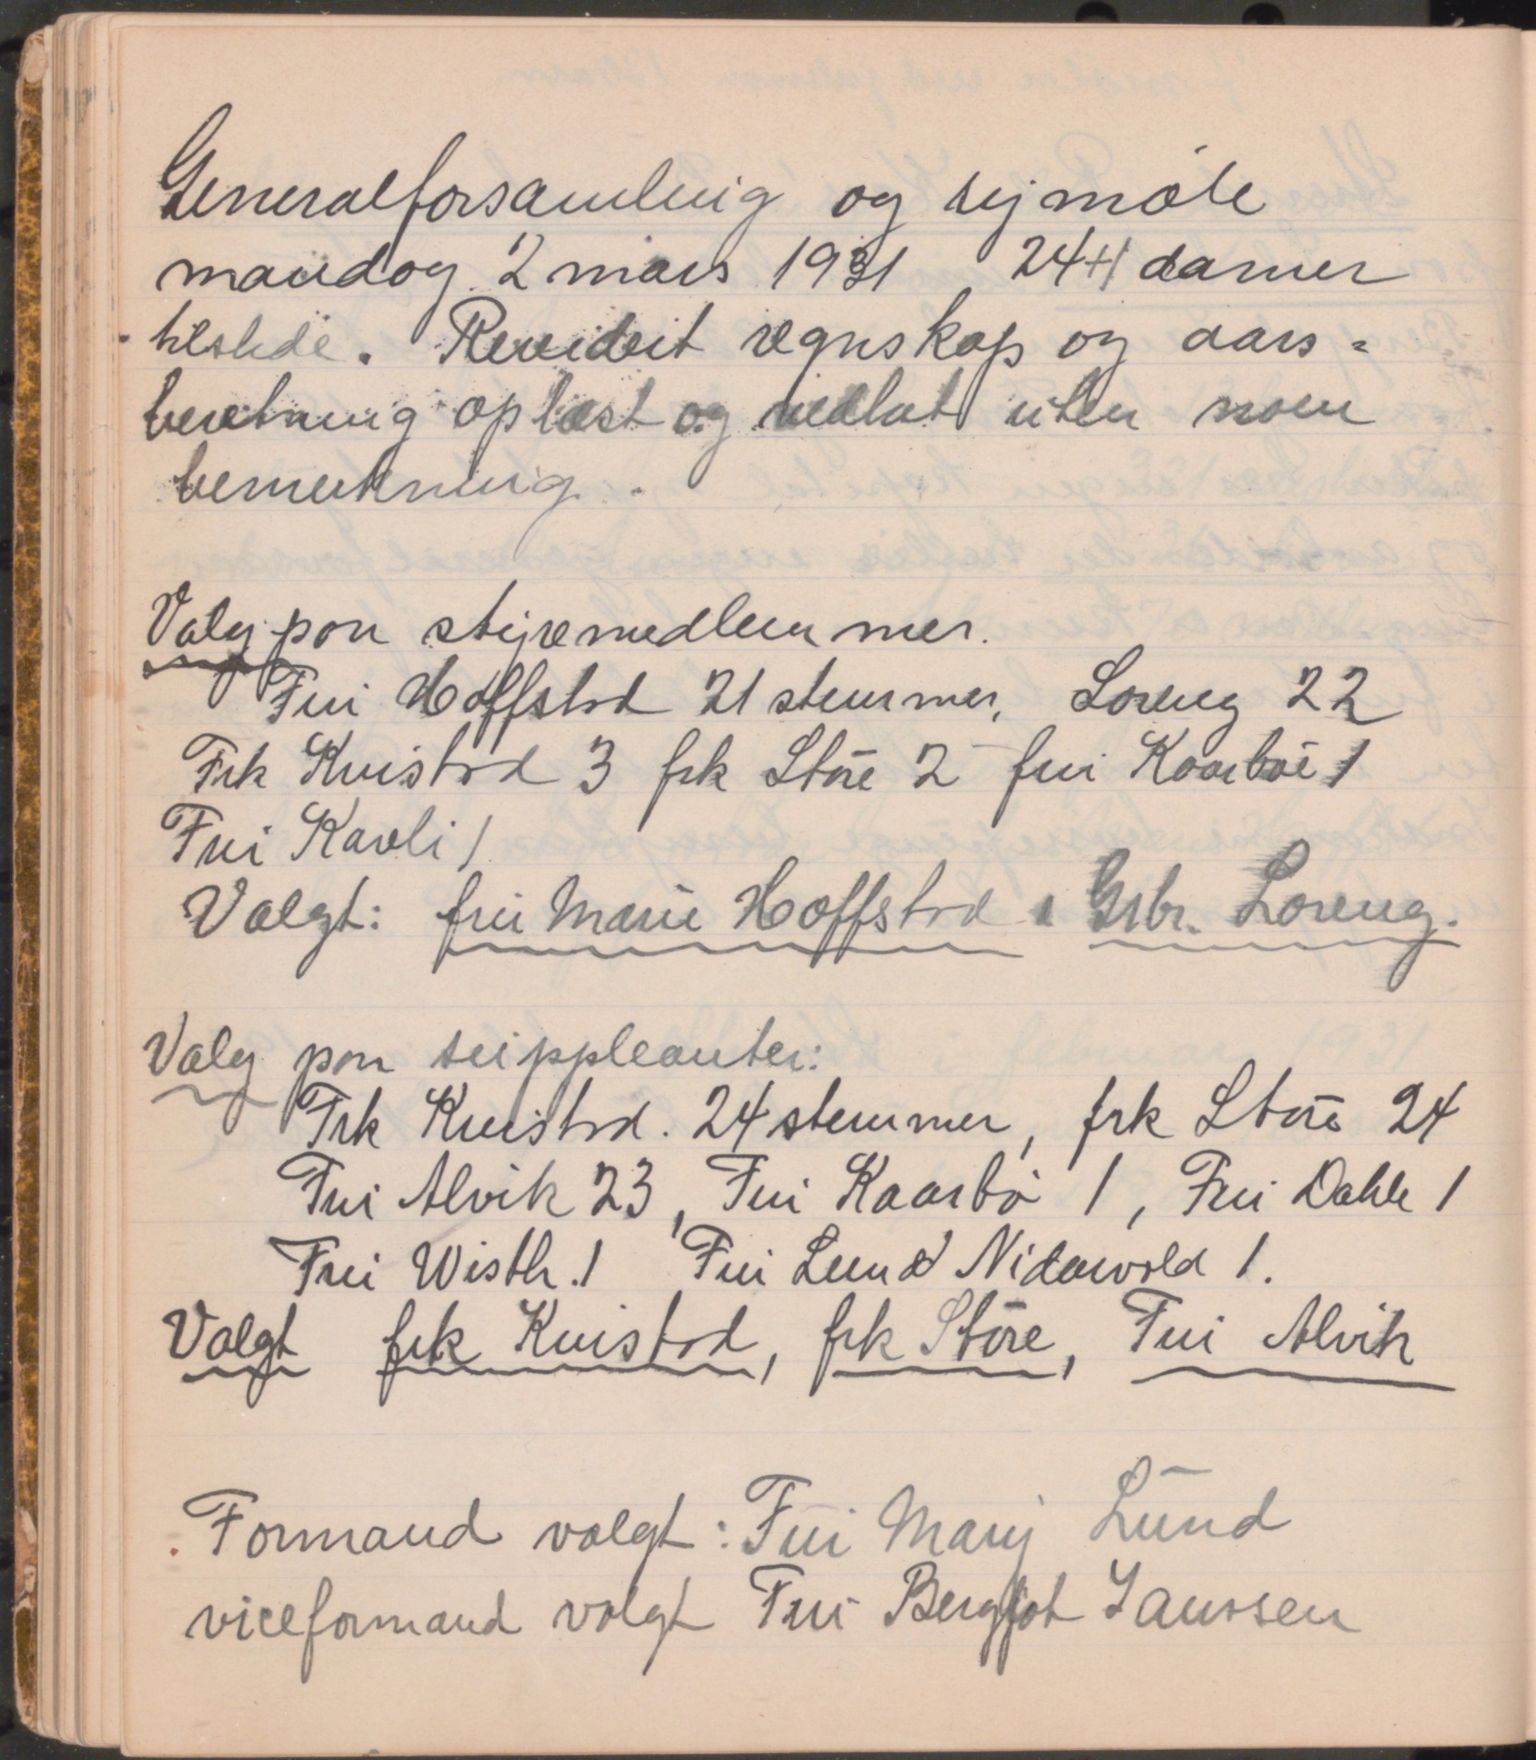 Generalforsamling og symöte
mandag 2 mars 1931 24+1 damer
tilstede. Revidert regnskap og aars=
beretning oplæst og vedtat uten noen
bemerkning.
Valg paa styremedlemmer.
Fru Hoffstad 21 stemmer, Loreng 22
Frk Kvistad 3 frk Störe 2 fru Kaarbøe 1
Fru Kavli 1
Valgt: fru Marie Hoffstad & Grbr. Loreng.
Valg paa suppleanter:
Frk Kvistad. 24 stemmer, frk Störe 24
Fru Alvik 23, Fru Kaarbø 1, Fru Dahle 1
Fru Wisth. 1 Fru Lund Nidarvold 1.
Valgt frk Kvistad, frk Störe, Fru Alvik
Formand valgt: Fru Mary Lund
viceformand valgt Fru Bergljot Janssen